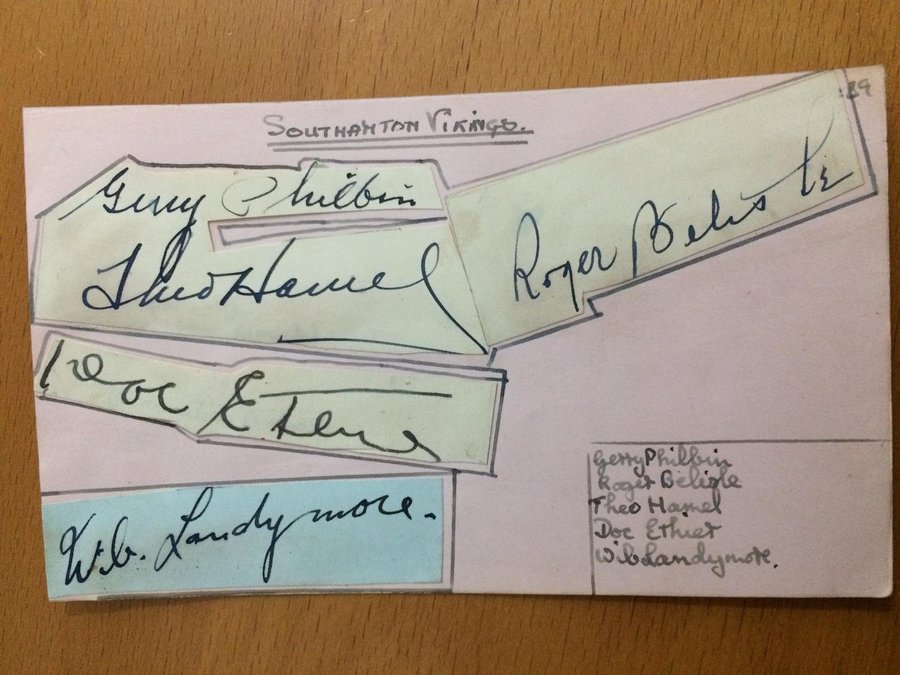 SOUTHAMTON VIKINGS.
39
Gerry Philbin
Theo Hamel
Roger Belisle
Doc Ethier
Wib. Landymore.
Gerry Philbin
Roger Belisle
Theo Hamel
Doc Ethiet
Wib Landymore.